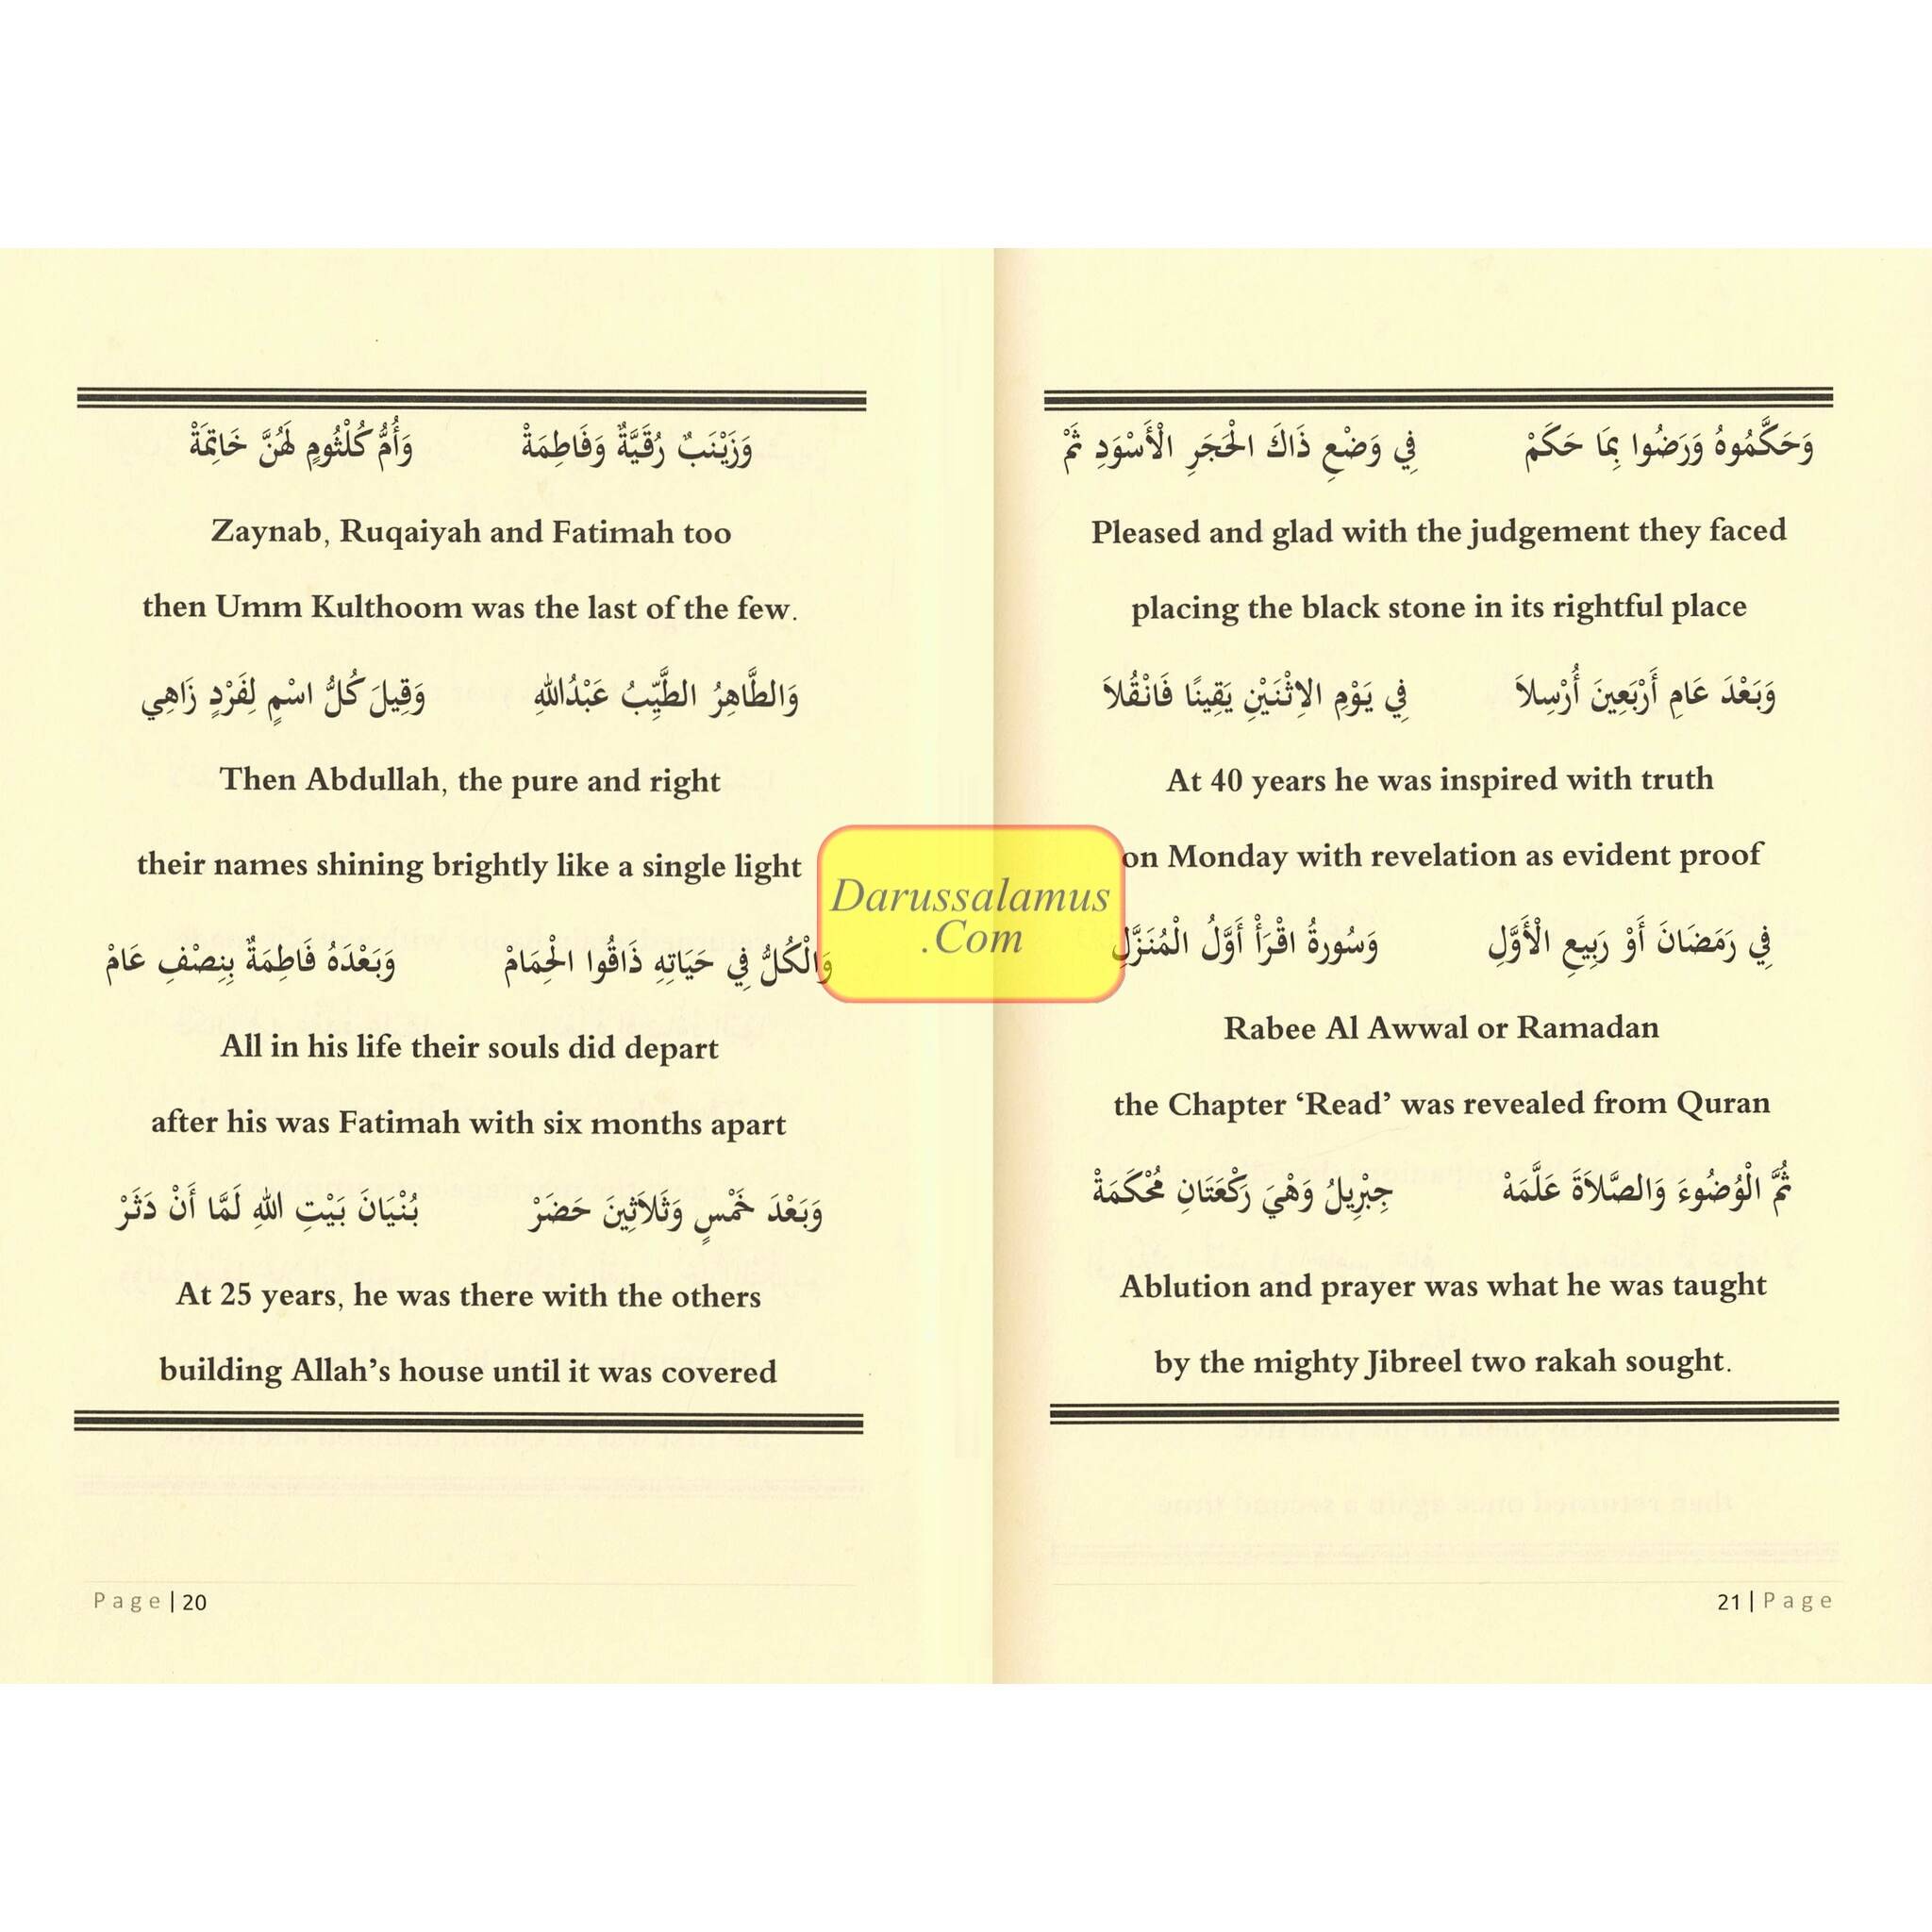 وَزَيْنَبٌ رُقَيَّةٌ وَفَاطِمَةْ وَأُمُّ كُلْثُومٍ لَهُنَّ خَاتِمَةْ
Zaynab, Ruqaiyah and Fatimah too
then Umm Kulthoom was the last of the few.
وَالطَّاهِرُ الطَّيِّبُ عَبْدُاللهِ وَقِيلَ كُلُّ اسْمٍ لِفَرْدٍ زَاهِي
Then Abdullah, the pure and right
their names shining brightly like a single light
وَالْكُلُّ فِي حَيَاتِهِ ذَاقُوا الْحِمَامْ وَبَعْدَهُ فَاطِمَةٌ بِنِصْفِ عَامْ
All in his life their souls did depart
after his was Fatimah with six months apart
وَبَعْدَ خَمْسٍ وَثَلاَثِينَ حَضَرْ بُنْيَانَ بَيْتِ اللهِ لَمَّا أَنْ دَثَرْ
At 25 years, he was there with the others
building Allah's house until it was covered
Page | 20
وَحَكَّمُوهُ وَرَضُوا بِمَا حَكَمْ فِي وَضْعِ ذَاكَ الْحَجَرِ الْأَسْوَدِ ثَمْ
Pleased and glad with the judgement they faced
placing the black stone in its rightful place
وَبَعْدَ عَامِ أَرْبَعِينَ أُرْسِلاَ فِي يَوْمِ الاِثْنَيْنِ يَقِينًا فَانْقُلاَ
At 40 years he was inspired with truth
on Monday with revelation as evident proof
فِي رَمَضَانَ أَوْ رَبِيعِ الْأَوَّلِ وَسُورةُ اقْرَأْ أَوَّلُ الْمُنَزَّلِ
Rabee Al Awwal or Ramadan
the Chapter ‘Read’ was revealed from Quran
ثُمَّ الْوُضُوءَ وَالصَّلاَةَ عَلَّمَهْ جِبْرِيلُ وَهْيَ رَكْعَتَانِ مُحْكَمَةْ
Ablution and prayer was what he was taught
by the mighty Jibreel two rakah sought.
21 | Page
Darussalamus
.Com